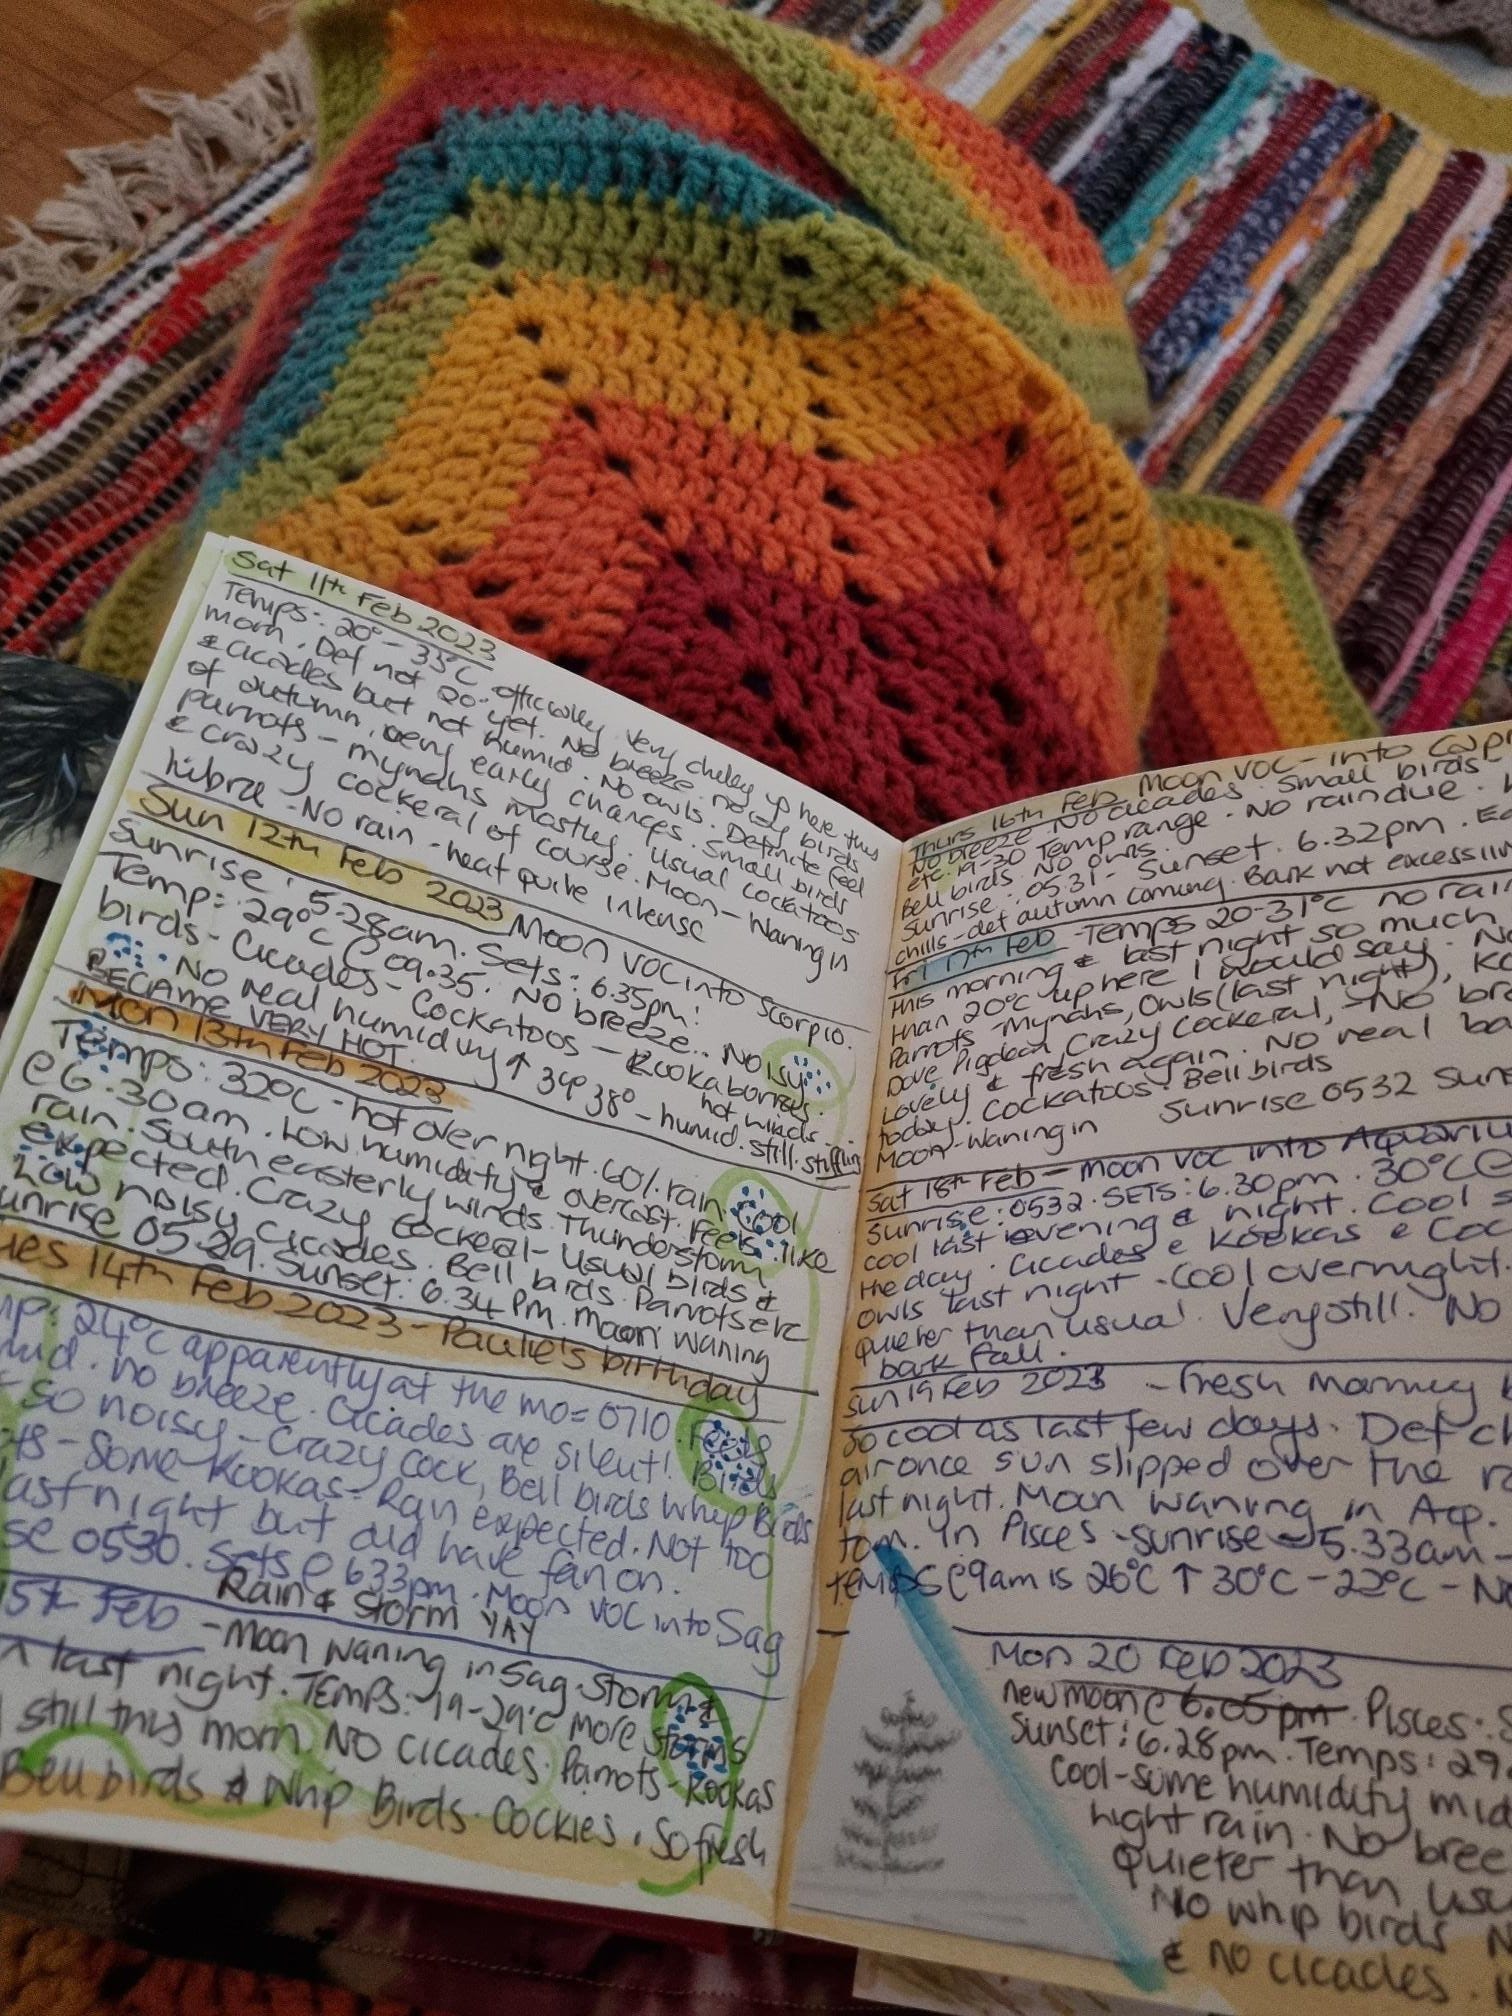 Sat 11th Feb 2023
Temps: 20° - 33°C officially. Very chilly up here this
morn. Def not 20° yet. No breeze. noisy birds
& cicadas but not humid. No owls. Definite feel
of autumn, very early changes. Small birds
parrots - mynahs mostly. Usual cockatoos
& crazy cockeral of course. Moon - Waning in
Libra - No rain - heat quite intense
Sun 12th Feb 2023 Moon VOC into Scorpio.
Sunrise: 5.28am. Sets: 6.35pm!
Temp: 29°C @ 09.35. No breeze.. Noisy
birds - Cicadas - Cockatoos - Kookaburras.
No real humidity ↑ 38° - hot winds...
BECAME VERY HOT humid. still. stifling
Mon 13th Feb 2023
Temps: 32°C - hot over night. 60% rain. Cool
@ 6.30am. Low humidity & overcast. Feels like
rain. South easterly winds. Thunderstorm
expected. Crazy Cockeral - Usual birds &
Low noisy cicadas. Bell birds. Parrots etc
unrise 05.29. Sunset: 6.34 pm. Moon waning
ues 14th Feb 2023 - Paulie's birthday
mp: 24°C apparently at the mo = 0710. Feels
mid. no breeze. Cicadas are silent! Birds
- so noisy - Crazy Cock, Bell birds Whip Birds
ts - Some Kookas - Rain expected. Not too
ast night but did have fan on.
se 0530. Sets @ 633pm. Moon VOC into Sag
Rain & Storm YAY
5th Feb - Moon Waning in Sag. Storm &
n last night. TEMPS: 19-29°C more storms
still this morn. NO cicadas. Parrots - Kookas
Bell birds & Whip Birds. Cockies. So fresh
Thurs 16th Feb Moon VOC - into Capr
No breeze No cicadas. Small birds
etc. 19-30 Temp range. No rain due.
Bell birds. No owls.
Sunrise: 05.31 - Sunset. 6.32pm.
chills - def autumn coming. Bark not excessiv
Fri 17th Feb - Temps 20-31°C no rai
this morning & last night so much
than 20°C up here I would say.
Parrots - Mynahs, Owls (last night),
Dove Pigdean, Crazy Cockeral, - No br
Lovely & fresh again. No real ba
today. Cockatoos. Bell birds
Moon - Waning in Sunrise 0532 Suns
Sat 18th Feb - moon VOC into Aquariu
Sunrise: 0532. SETS: 6.30pm. 30°C @
cool last evening & night. Cool
the day. Cicadas & Kookas & Coc
owls last night - Cool overnight.
quieter than usual. Very still. No
bark fall.
Sun 19 Feb 2023 - Fresh morning
so cool as last few days. Def ch
air once sun slipped over the
last night. Moon waning in Aqu.
tom. in Pisces - sunrise - 5.33am -
TEMPS @ 9am is 26°C ↑ 30°C - 22°C - N
Mon 20 Feb 2023
new moon @ 6.05 pm. Pisces. S
Sunset: 6.28pm. Temps: 29
Cool - some humidity mid
light rain. No bree
Quieter than usu
No whip birds N
& NO cicadas.